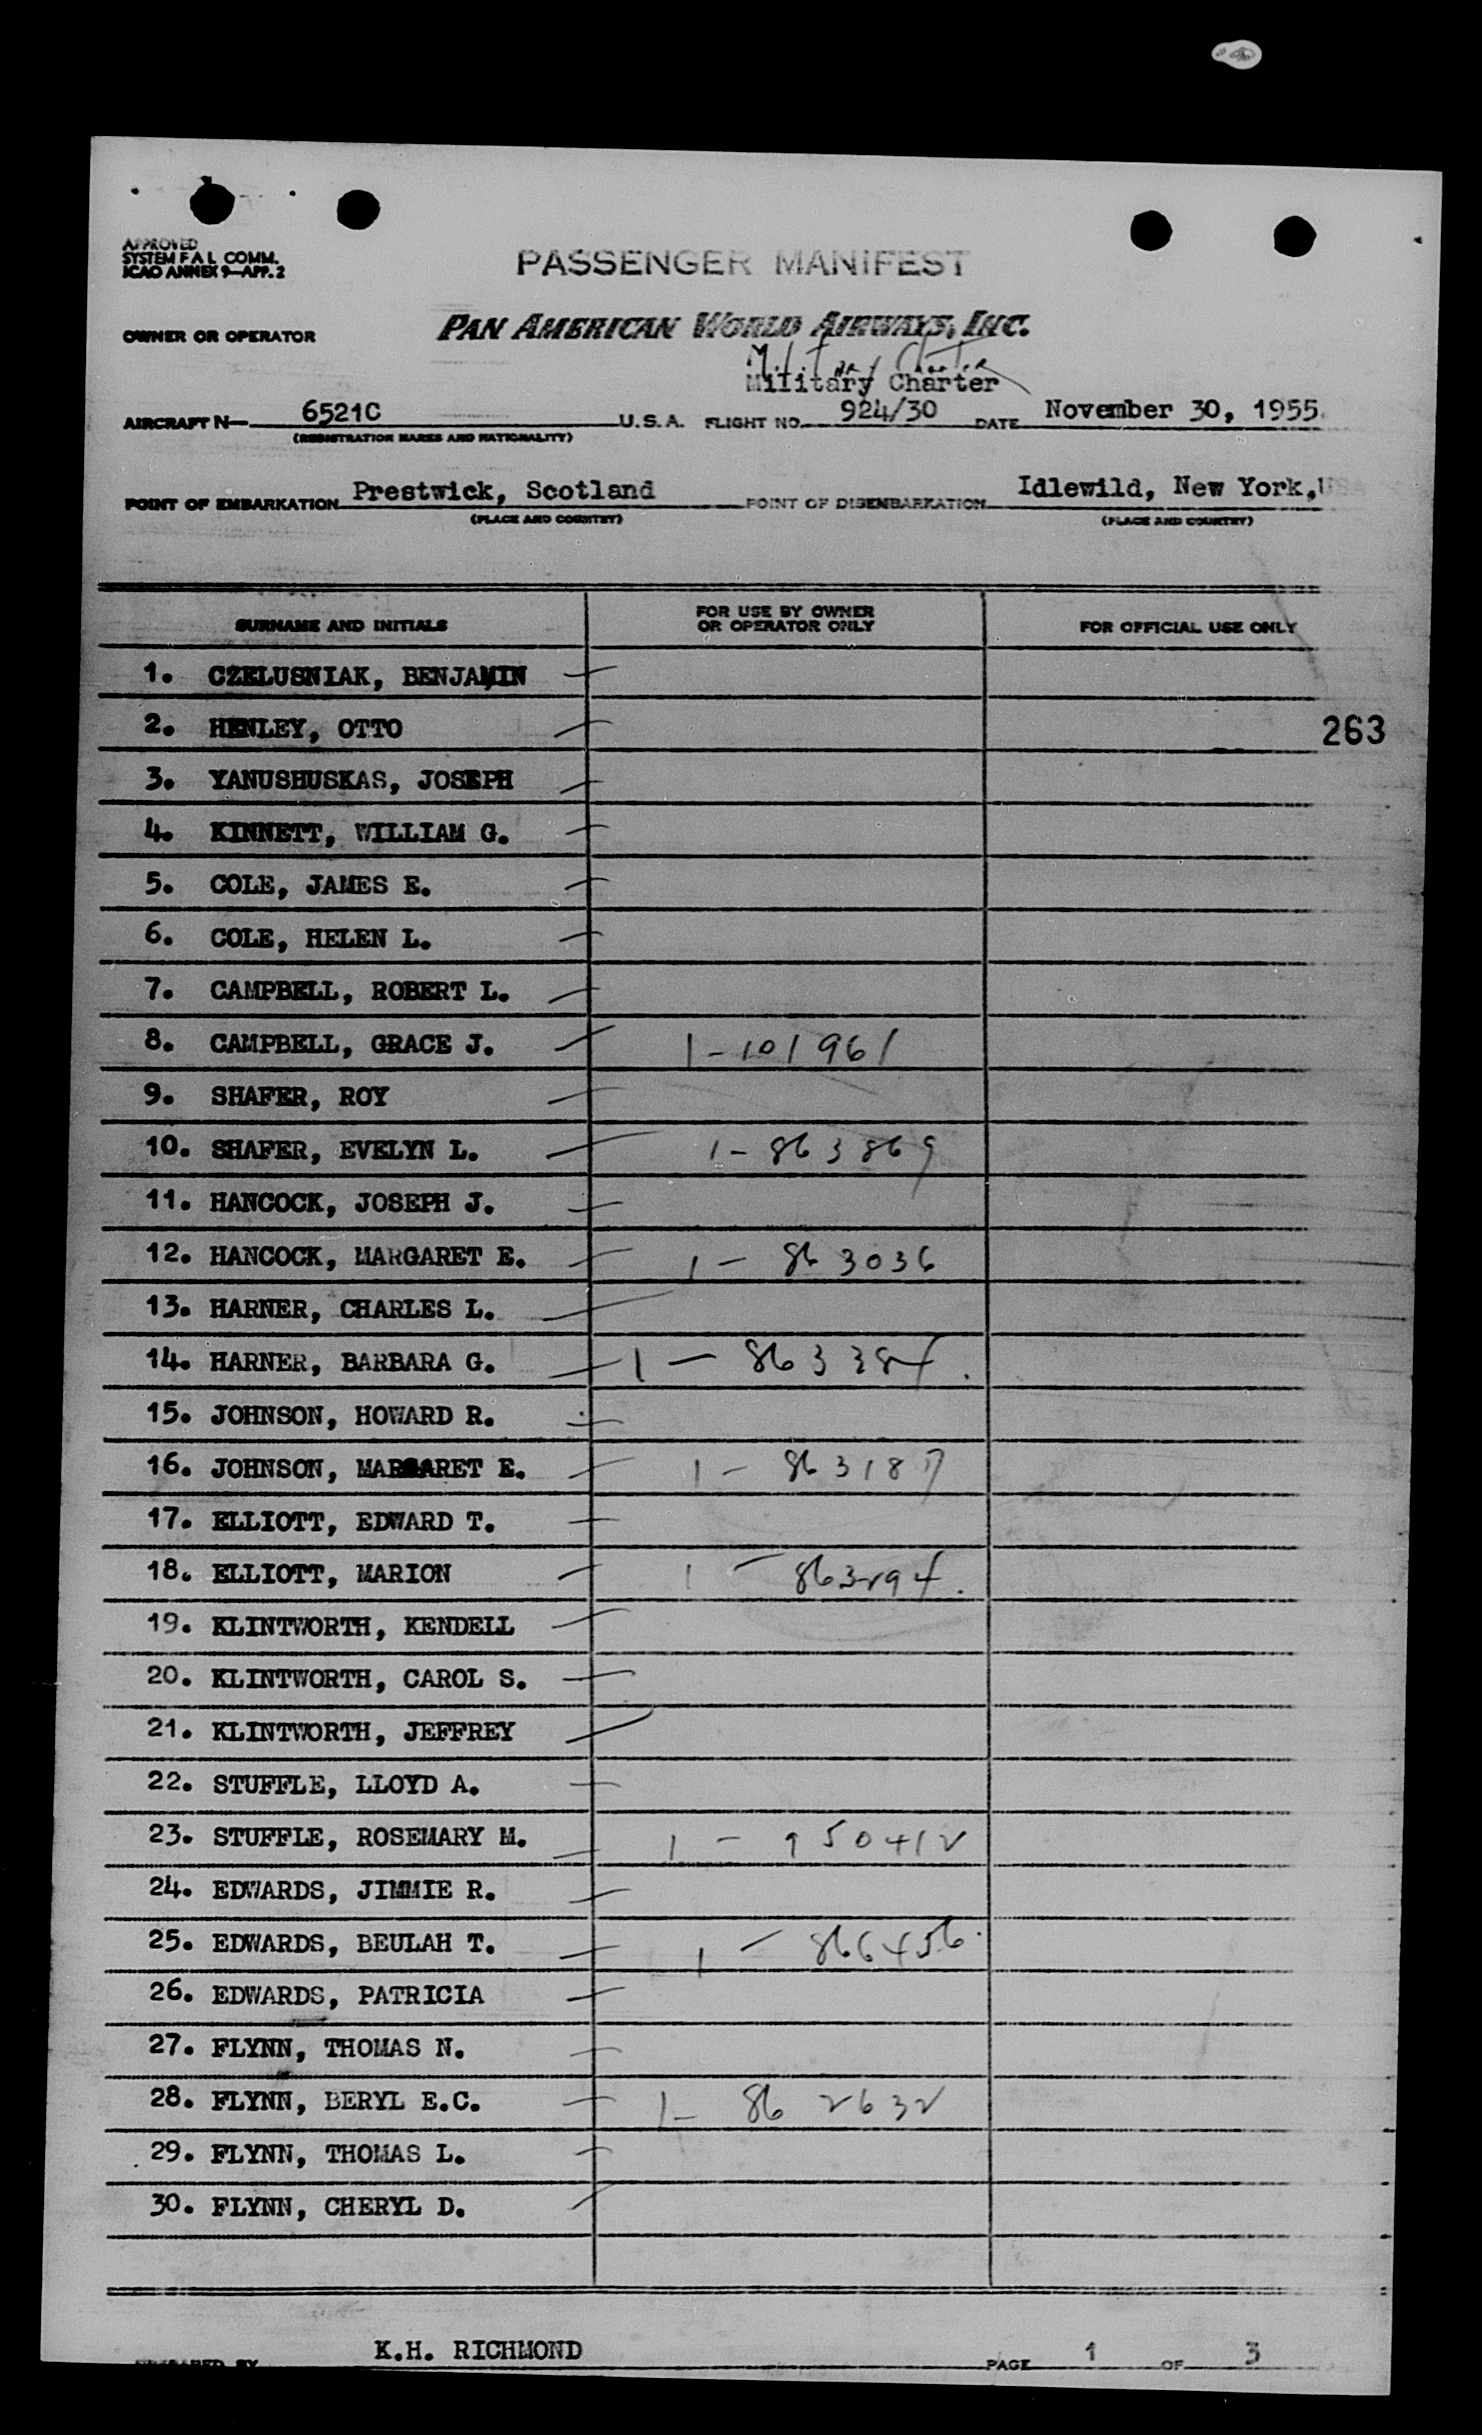 APPROVED
SYSTEM F A L COMM.
ICAO ANNEX 9—APP. 2
PASSENGER MANIFEST
OWNER OR OPERATOR PAN AMERICAN WORLD AIRWAYS, INC.
Military Charter
Military Charter
AIRCRAFT N— 6521C U.S.A. FLIGHT NO. 924/30 DATE November 30, 1955
(REGISTRATION MARKS AND NATIONALITY)
POINT OF EMBARKATION Prestwick, Scotland POINT OF DISEMBARKATION Idlewild, New York, USA
(PLACE AND COUNTRY) (PLACE AND COUNTRY)
SURNAME AND INITIALS FOR USE BY OWNER OR OPERATOR ONLY FOR OFFICIAL USE ONLY
1. CZELUSNIAK, BENJAMIN
2. HENLEY, OTTO 263
3. YANUSHUSKAS, JOSEPH
4. KINNETT, WILLIAM G.
5. COLE, JAMES E.
6. COLE, HELEN L.
7. CAMPBELL, ROBERT L.
8. CAMPBELL, GRACE J. 1-101961
9. SHAFER, ROY
10. SHAFER, EVELYN L. 1-863869
11. HANCOCK, JOSEPH J.
12. HANCOCK, MARGARET E. 1-863036
13. HARNER, CHARLES L.
14. HARNER, BARBARA G. 1-863384.
15. JOHNSON, HOWARD R.
16. JOHNSON, MARGARET E. 1-863187
17. ELLIOTT, EDWARD T.
18. ELLIOTT, MARION 1-863294.
19. KLINTWORTH, KENDELL
20. KLINTWORTH, CAROL S.
21. KLINTWORTH, JEFFREY
22. STUFFLE, LLOYD A.
23. STUFFLE, ROSEMARY M. 1-950412
24. EDWARDS, JIMMIE R.
25. EDWARDS, BEULAH T. 1-866456.
26. EDWARDS, PATRICIA
27. FLYNN, THOMAS N.
28. FLYNN, BERYL E.C. 1-862632
29. FLYNN, THOMAS L.
30. FLYNN, CHERYL D.
PREPARED BY K.H. RICHMOND PAGE 1 OF 3